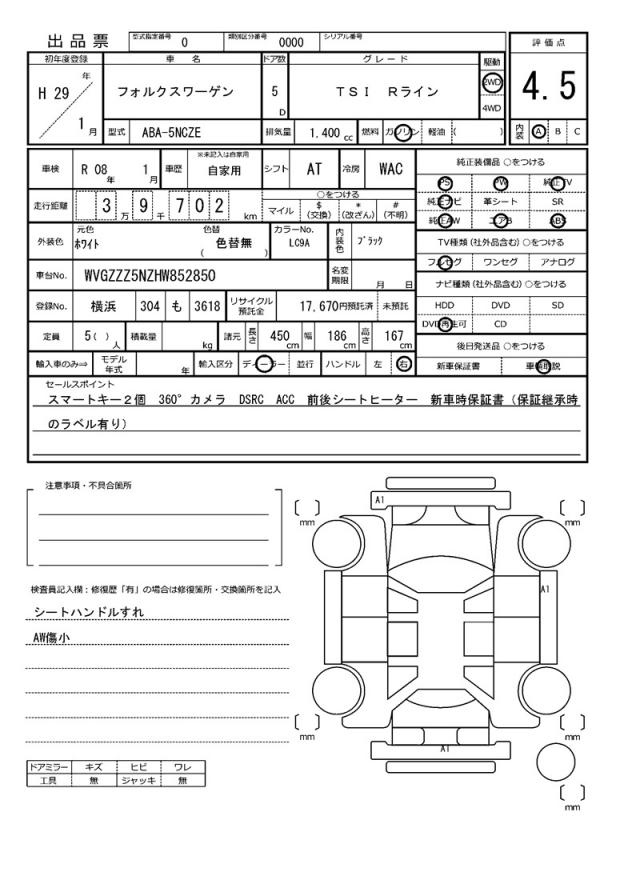 出品票 型式指定番号 0 類別区分番号 0000 シリアル番号
評価点
4.5
内装 A B C
初年度登録 車名 ドア数 グレード 駆動
H 29 年 フォルクスワーゲン 5 D TSI Rライン 2WD
4WD
1 月 型式 ABA-5NCZE 排気量 1.400 cc 燃料 ガソリン 軽油 ( )
車検 R 08 年 1 月 車歴 ※未記入は自家用 自家用 シフト AT 冷房 WAC
走行距離 3 万 9 千 7 0 2 km ○をつける
マイル $ (交換) * (改ざん) # (不明)
外装色 元色 ホワイト 色替 ( 色替無 ) カラーNo. LC9A 内装色 ブラック
車台No. WVGZZZ5NZHW852850 名変期限 月 日
登録No. 横浜 304 も 3618 リサイクル預託金 17,670円預託済 未預託
定員 5( ) 人 積載量 kg 諸元 長さ 450 cm 幅 186 cm 高さ 167 cm
輸入車のみ⇒ モデル年式 年 輸入区分 ディーラー 並行 ハンドル 左 右
純正装備品 ○をつける
PS PW 純正TV
純正ナビ 革シート SR
純正AW エアB ABS
TV種類 (社外品含む) ○をつける
フルセグ ワンセグ アナログ
ナビ種類 (社外品含む) ○をつける
HDD DVD SD
DVD再生可 CD
後日発送品 ○をつける
新車保証書 車輌取説
セールスポイント
スマートキー2個 360°カメラ DSRC ACC 前後シートヒーター 新車時保証書（保証継承時
のラベル有り）
注意事項・不具合箇所
検査員記入欄：修復歴「有」の場合は修復箇所・交換箇所を記入
シートハンドルすれ
AW傷小
ドアミラー キズ ヒビ ワレ
工具 無 ジャッキ 無
A1
mm
mm
A1
mm
mm
A1
mm